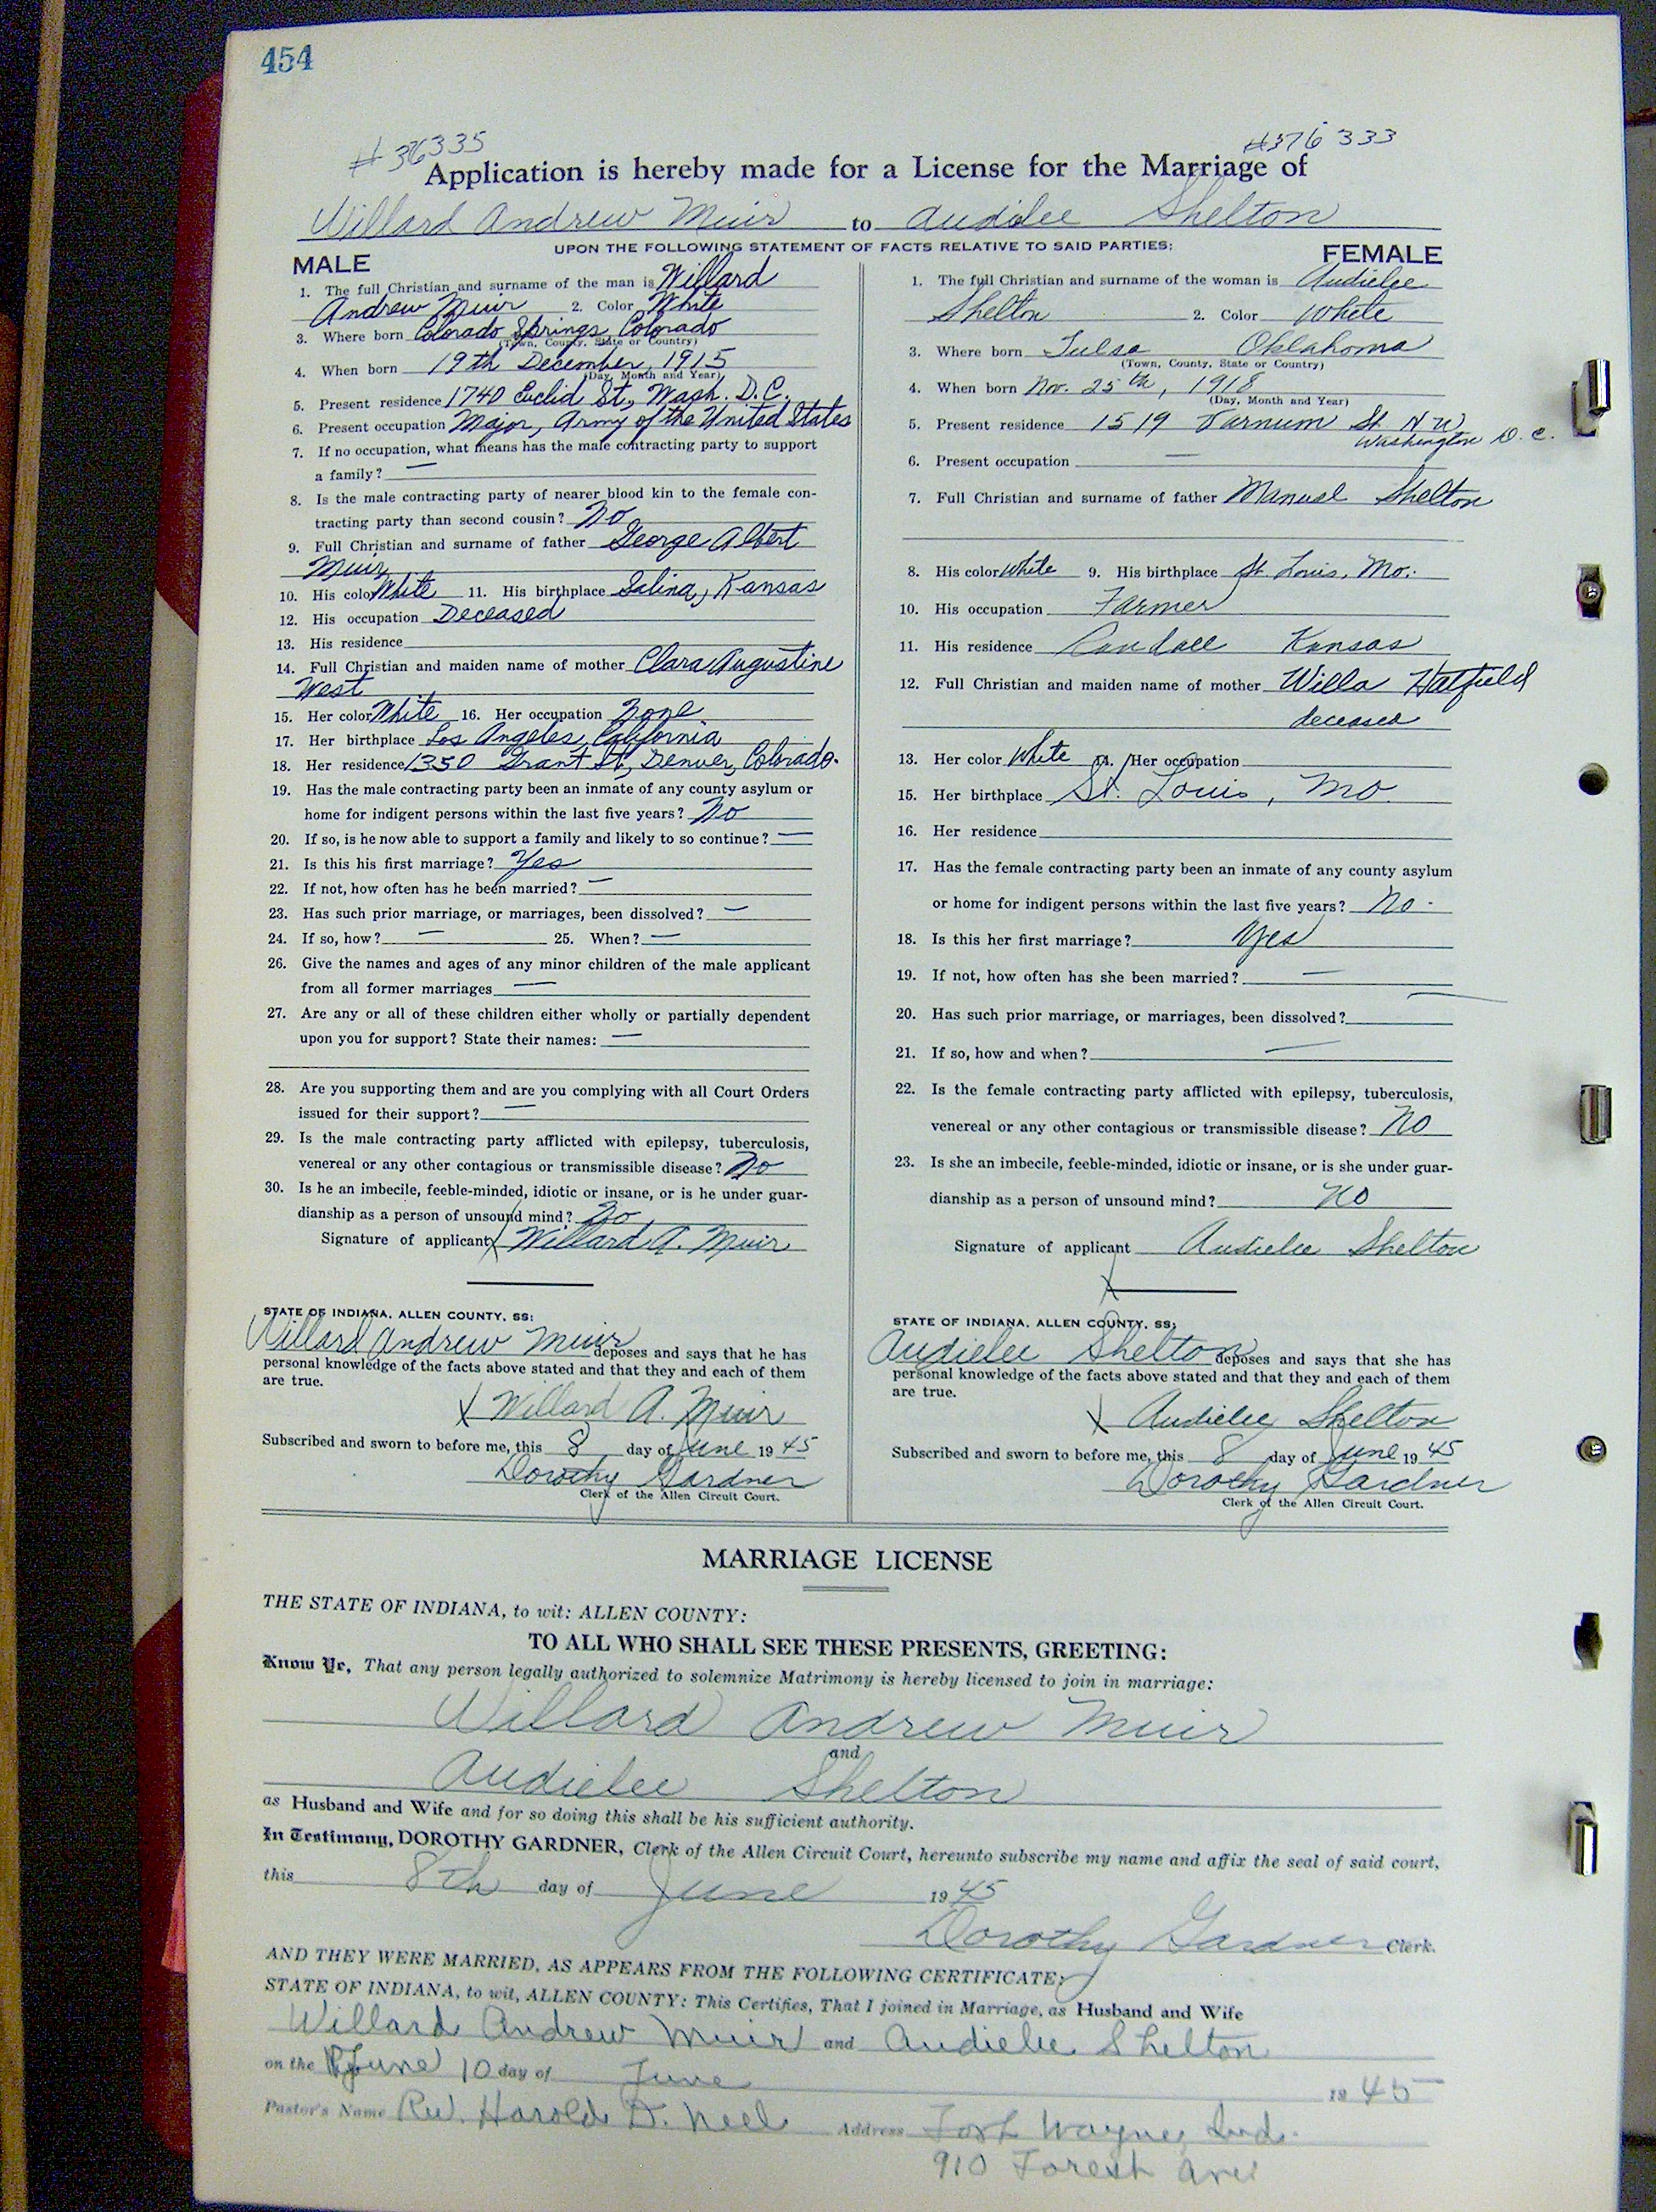 454
#36335 #376 333
Application is hereby made for a License for the Marriage of
Willard Andrew Muir to Audielee Shelton
UPON THE FOLLOWING STATEMENT OF FACTS RELATIVE TO SAID PARTIES:
MALE
1. The full Christian and surname of the man is Willard
Andrew Muir 2. Color White
3. Where born Colorado Springs, Colorado
(Town, County, State or Country)
4. When born 19th December, 1915
(Day, Month and Year)
5. Present residence 1740 Euclid St., Wash. D.C.
6. Present occupation Major, Army of the United States
7. If no occupation, what means has the male contracting party to support
a family? —
8. Is the male contracting party of nearer blood kin to the female con-
tracting party than second cousin? No
9. Full Christian and surname of father George Albert
Muir
10. His color White 11. His birthplace Salina, Kansas
12. His occupation Deceased
13. His residence
14. Full Christian and maiden name of mother Clara Augustine
West
15. Her color White 16. Her occupation None
17. Her birthplace Los Angeles, California
18. Her residence 1350 Grant St., Denver, Colorado.
19. Has the male contracting party been an inmate of any county asylum or
home for indigent persons within the last five years? No
20. If so, is he now able to support a family and likely to so continue? —
21. Is this his first marriage? Yes
22. If not, how often has he been married? —
23. Has such prior marriage, or marriages, been dissolved? —
24. If so, how? — 25. When? —
26. Give the names and ages of any minor children of the male applicant
from all former marriages —
27. Are any or all of these children either wholly or partially dependent
upon you for support? State their names: —
28. Are you supporting them and are you complying with all Court Orders
issued for their support? —
29. Is the male contracting party afflicted with epilepsy, tuberculosis,
venereal or any other contagious or transmissible disease? No
30. Is he an imbecile, feeble-minded, idiotic or insane, or is he under guar-
dianship as a person of unsound mind? No
Signature of applicant X Willard A. Muir
STATE OF INDIANA, ALLEN COUNTY, SS:
Willard Andrew Muir deposes and says that he has
personal knowledge of the facts above stated and that they and each of them
are true.
X Willard A. Muir
Subscribed and sworn to before me, this 8 day of June 1945
Dorothy Gardner
Clerk of the Allen Circuit Court.
FEMALE
1. The full Christian and surname of the woman is Audielee
Shelton 2. Color White
3. Where born Tulsa Oklahoma
(Town, County, State or Country)
4. When born Nov. 25th, 1918
(Day, Month and Year)
5. Present residence 1519 Varnum St. N W
Washington D. C.
6. Present occupation —
7. Full Christian and surname of father Manuel Shelton
8. His color White 9. His birthplace St. Louis, Mo.
10. His occupation Farmer
11. His residence Randall Kansas
12. Full Christian and maiden name of mother Willa Hatfield
deceased
13. Her color White 14. Her occupation
15. Her birthplace St. Louis, Mo.
16. Her residence
17. Has the female contracting party been an inmate of any county asylum
or home for indigent persons within the last five years? No -
18. Is this her first marriage? Yes
19. If not, how often has she been married? —
20. Has such prior marriage, or marriages, been dissolved? —
21. If so, how and when? —
22. Is the female contracting party afflicted with epilepsy, tuberculosis,
venereal or any other contagious or transmissible disease? No
23. Is she an imbecile, feeble-minded, idiotic or insane, or is she under guar-
dianship as a person of unsound mind? No
Signature of applicant Audielee Shelton
X
STATE OF INDIANA, ALLEN COUNTY, SS:
Audielee Shelton deposes and says that she has
personal knowledge of the facts above stated and that they and each of them
are true.
X Audielee Shelton
Subscribed and sworn to before me, this 8 day of June 1945
Dorothy Gardner
Clerk of the Allen Circuit Court.
MARRIAGE LICENSE
THE STATE OF INDIANA, to wit: ALLEN COUNTY:
TO ALL WHO SHALL SEE THESE PRESENTS, GREETING:
Know Ye, That any person legally authorized to solemnize Matrimony is hereby licensed to join in marriage:
Willard Andrew Muir
and
Audielee Shelton
as Husband and Wife and for so doing this shall be his sufficient authority.
In Testimony, DOROTHY GARDNER, Clerk of the Allen Circuit Court, hereunto subscribe my name and affix the seal of said court,
this 8th day of June 1945
Dorothy Gardner Clerk.
AND THEY WERE MARRIED, AS APPEARS FROM THE FOLLOWING CERTIFICATE:
STATE OF INDIANA, to wit, ALLEN COUNTY: This Certifies, That I joined in Marriage, as Husband and Wife
Willard Andrew Muir and Audielee Shelton
on the June 10 day of June 1945
Pastor's Name Rev. Harold D. Neel Address Fort Wayne, Ind.
910 Forest Ave